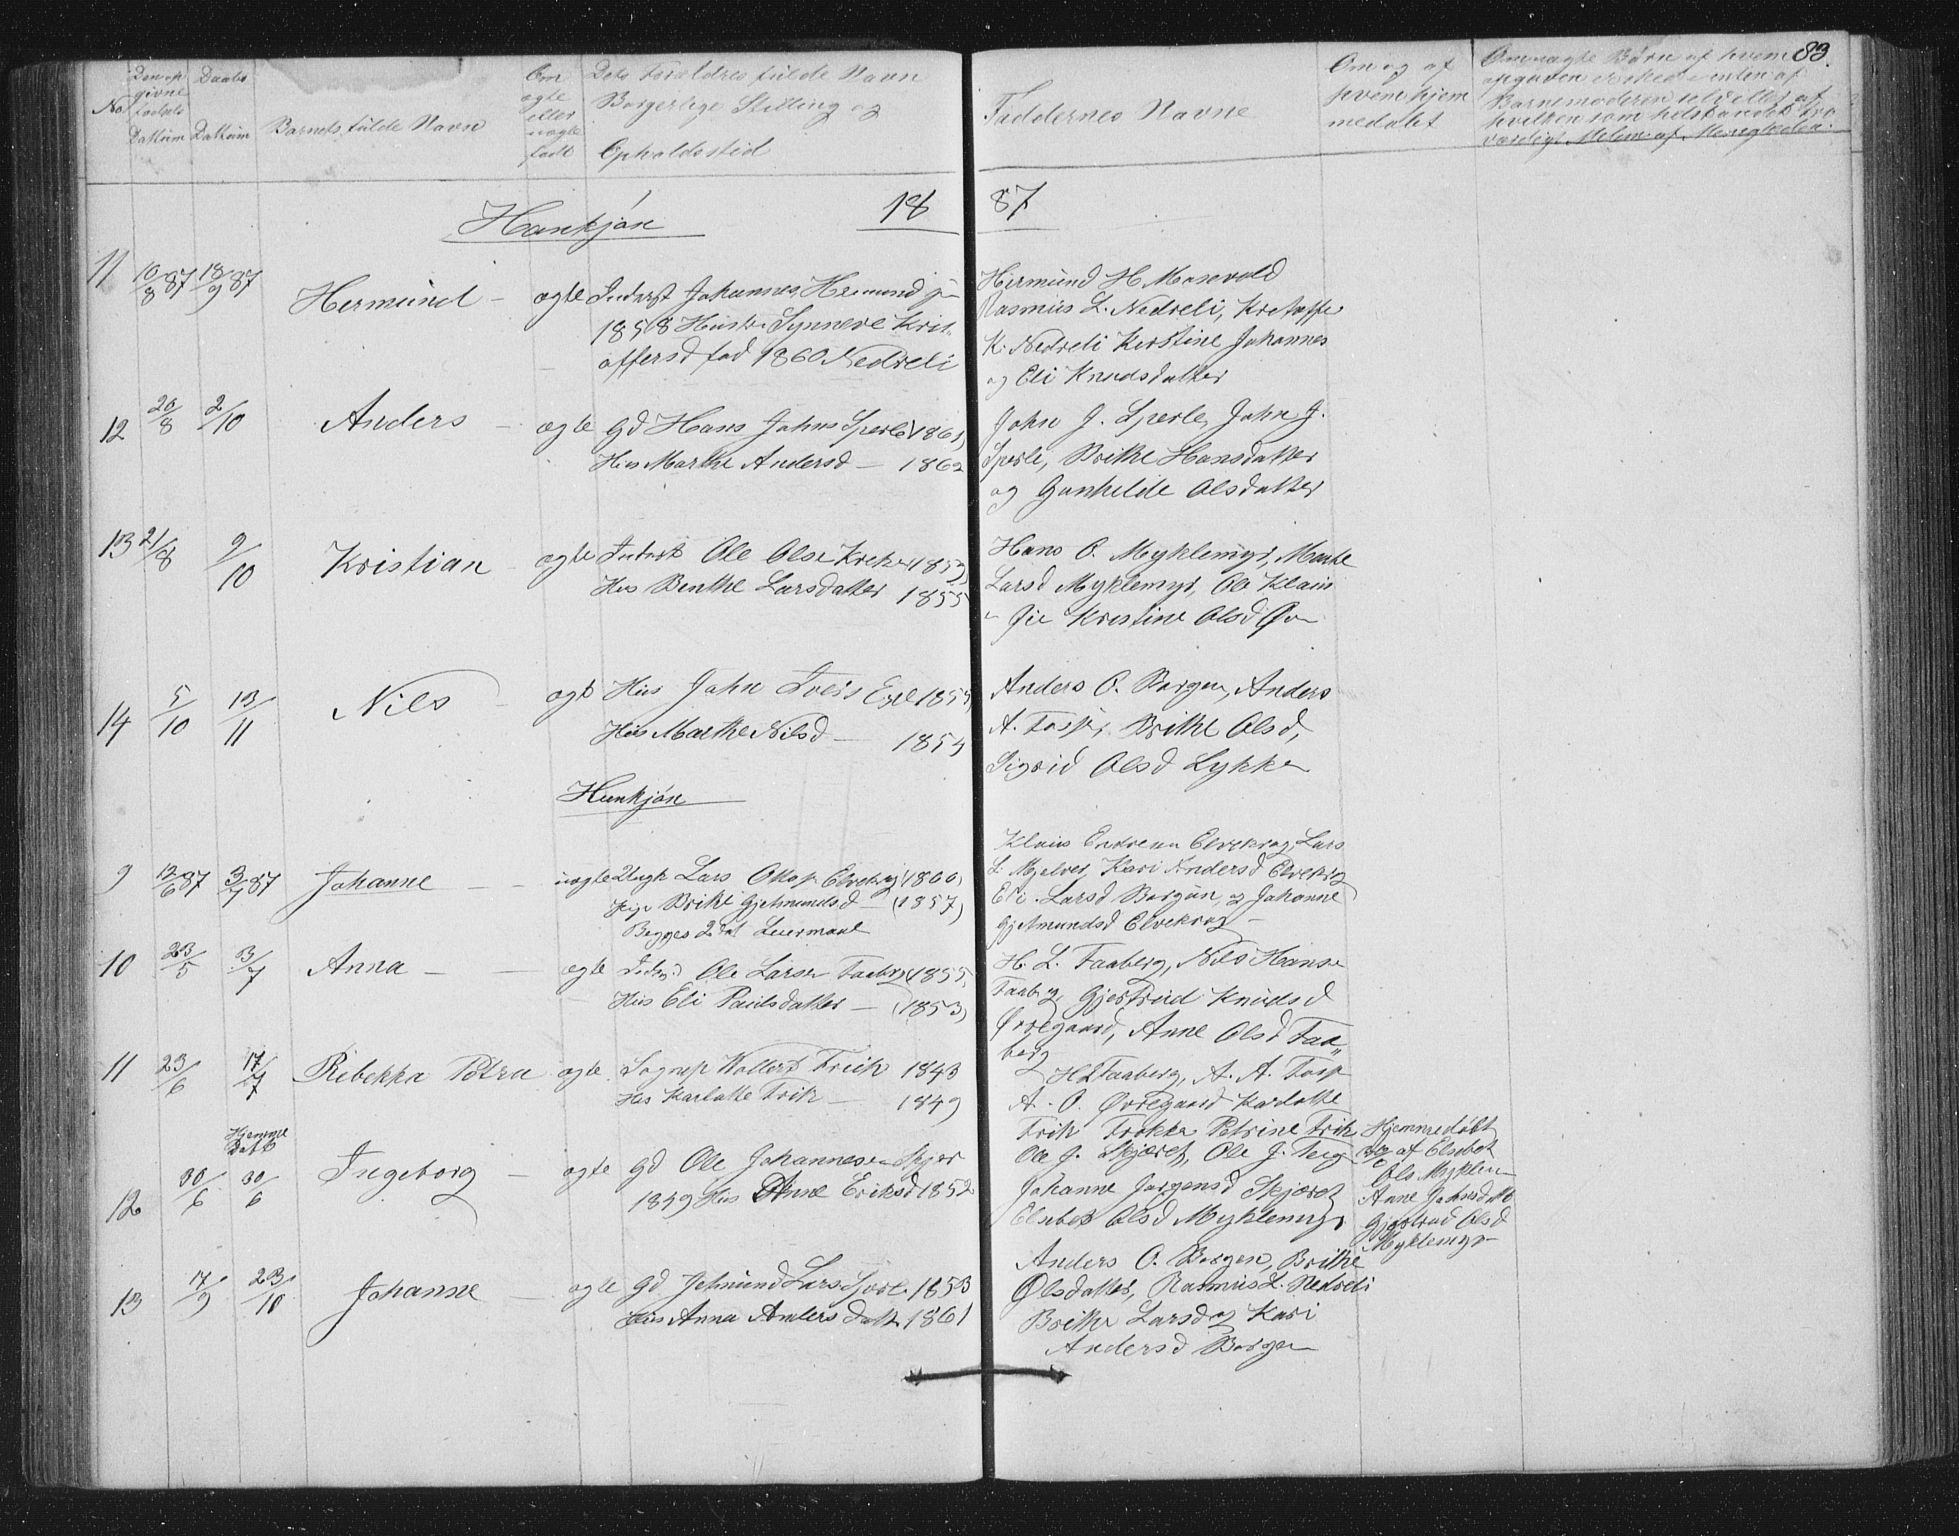 83.
No
Den op
givne
fødsels
Dattum
Daabs
Dattum
Barnets fulde Navn
Om
ægte
eller
uægte
født
Dets Forældres fulde Navn
Borgerlige Stilling og
Opholdssted
Faddernes Navne
Om og af
hvem hjem
medøbt
Om uægte Børn af hvem
Barnemoderen selv eller af
18 87
Hankjøn
11 10/8 87 18/9 87 Hermund - ægte Johannes Hermund
1858 Hustr. Synneve Krist
offersd fød 1860 Nedreli
Hermund H. Mosevold
Rasmus L. Nedreli,
K. Nedreli Kerstine Johannes
og Eli Knudsdatter
12 20/8 2/10 Anders - ægte Gd Hans Johns Sperle (1861)
Hus Marthe Andersd — 1862
John J. Sperle, John J.
Sperle, Brithe Hansdatter
og Gunhilde Olsdatter
13 21/8 9/10 Kristian - ægte Ole Olsen Kreken (1853)
Hus Benthe Larsdatter 1855
Hans O. Myklemyr, Marthe
Larsd Myklemyr, Ole Klaus
Kristine Olsd
14 5/10 13/11 Nils ægte Hus John
Hus Marthe Nilsd — 1854
Anders O. Borgen, Anders
A. Brithe Olsd,
Sigrid Olsd Lykken
Hunkjøn
9 12/6 87 3/7 87 Johanne - - uægte Lars Elvekrog (1860)
Brithe Gjermundsd — (1857)
Begges 2det Leiermaal
Klaus Endresen Elvekrog, Lars
L. Mjelver, Kari Andersd Elvekrog
Eli Larsd Borgen og Johanne
Gjermundsd Elvekrog —
10 23/5 3/7 Anna - - ægte Ole Larsen Faaberg (1855)
Hus Eli Paulsdatter — (1853)
H. L. Faaberg, Nils Hansen
Faaberg, Gjertrud Knudsd
Øvregaard, Anne Olsd Faa„
berg
11 23/6 17/7 Rebekka Petra ægte Vollert Frich 1843
Hus Karlotte Frik — 1849
H L Faaberg, A. A.
A. O. Øvregaard Karlotte
Frik Petrine Frik
12 30/6 Hjemme
Døbt
30/6 Ingeborg - ægte Gd Ole Johannesen Skjær
1849 Hus Anne Eriksd 1852
Ole J. Skjæret, Ole J. Teig
Johanne Jørgensd Skjæret
Elsebet Olsd Myklemyr
Hjemmedøbt
30/6 af Elsebet
Ols Myklem
Anne
Gjertrud Olsd
Myklemyr
13 17/9 23/10 Johanne - ægte Gd Lars 1853
Hus Anna Anders Datt 1861
Anders O. Borgen, Brithe
Olsdatter, Rasmus L. Nedreli
Brithe Larsd og Kari
Andersd Borgen